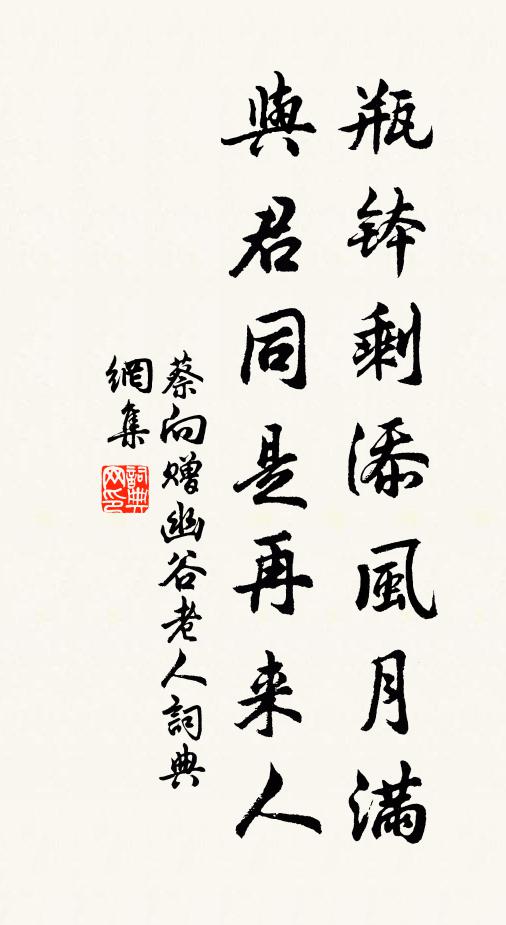 瓶钵剩添風月滿
與君同是再来人
蔡向贈幽谷老人詞典
網集
詞典網印